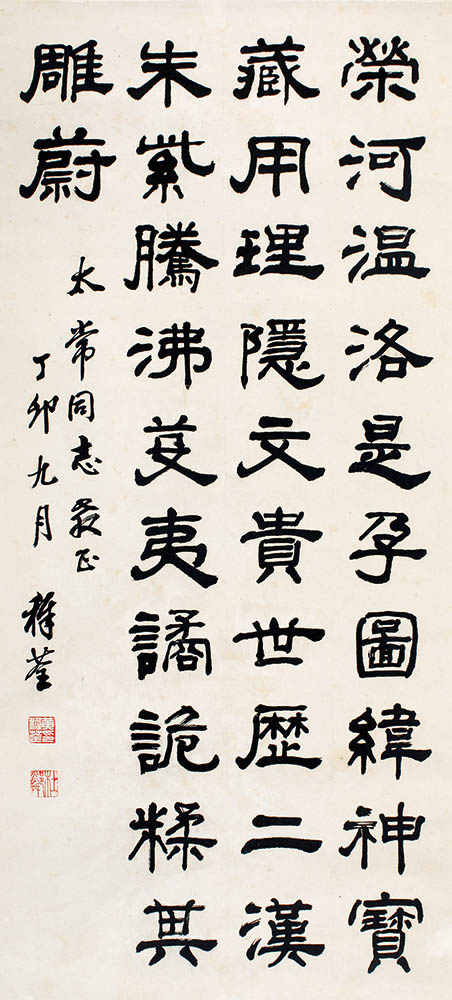 榮河温洛是孕圖緯神寶
藏用理隱文貴世歴二漢
朱紫騰沸芟夷譎詭糅其
雕蔚
太常同志教正
丁卯九月 稺荃